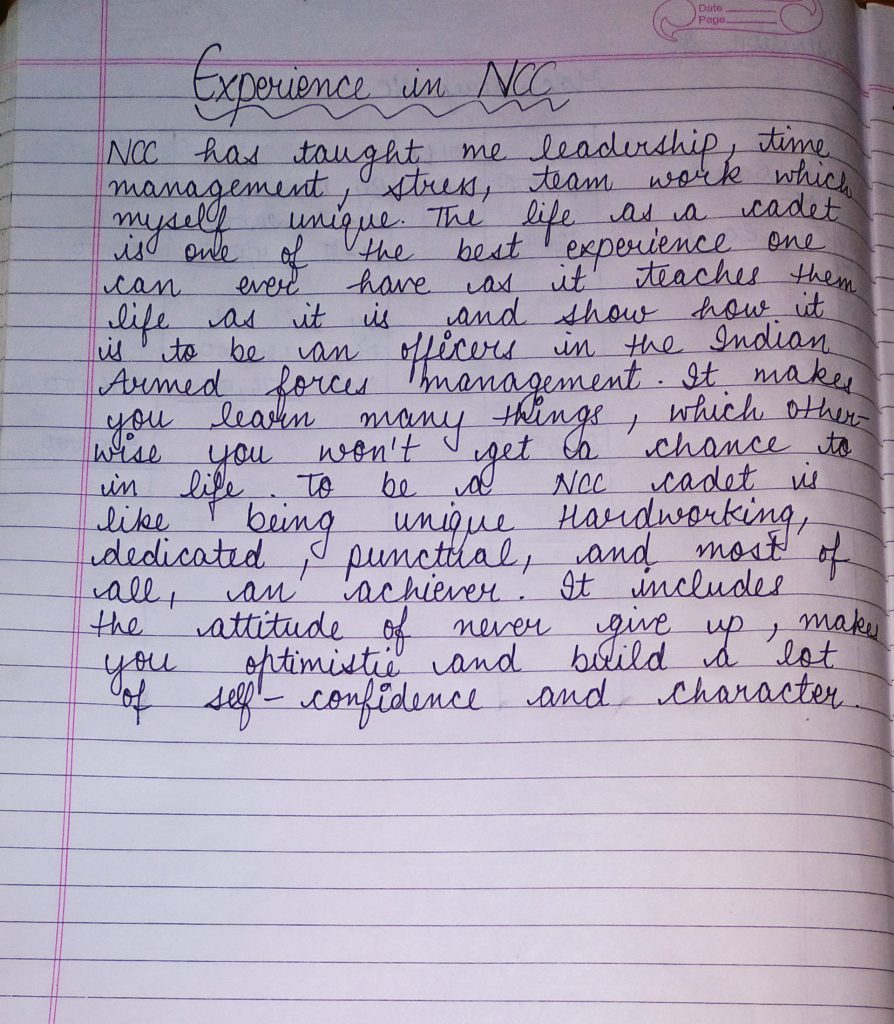 Date
Page
Experience in NCC
NCC has taught me leadership, time
management, stress, team work which
myself unique. The life as a cadet
is one of the best experience one
can ever have as it teaches them
life as it is and show how it
is to be an officers in the Indian
Armed forces management. It makes
you learn many things, which other-
wise you won't get a chance to
in life. To be a NCC cadet is
like being unique Hardworking,
dedicated, punctual, and most of
all, an achiever. It includes
the attitude of never give up, makes
you optimistic and build a lot
of self-confidence and character.